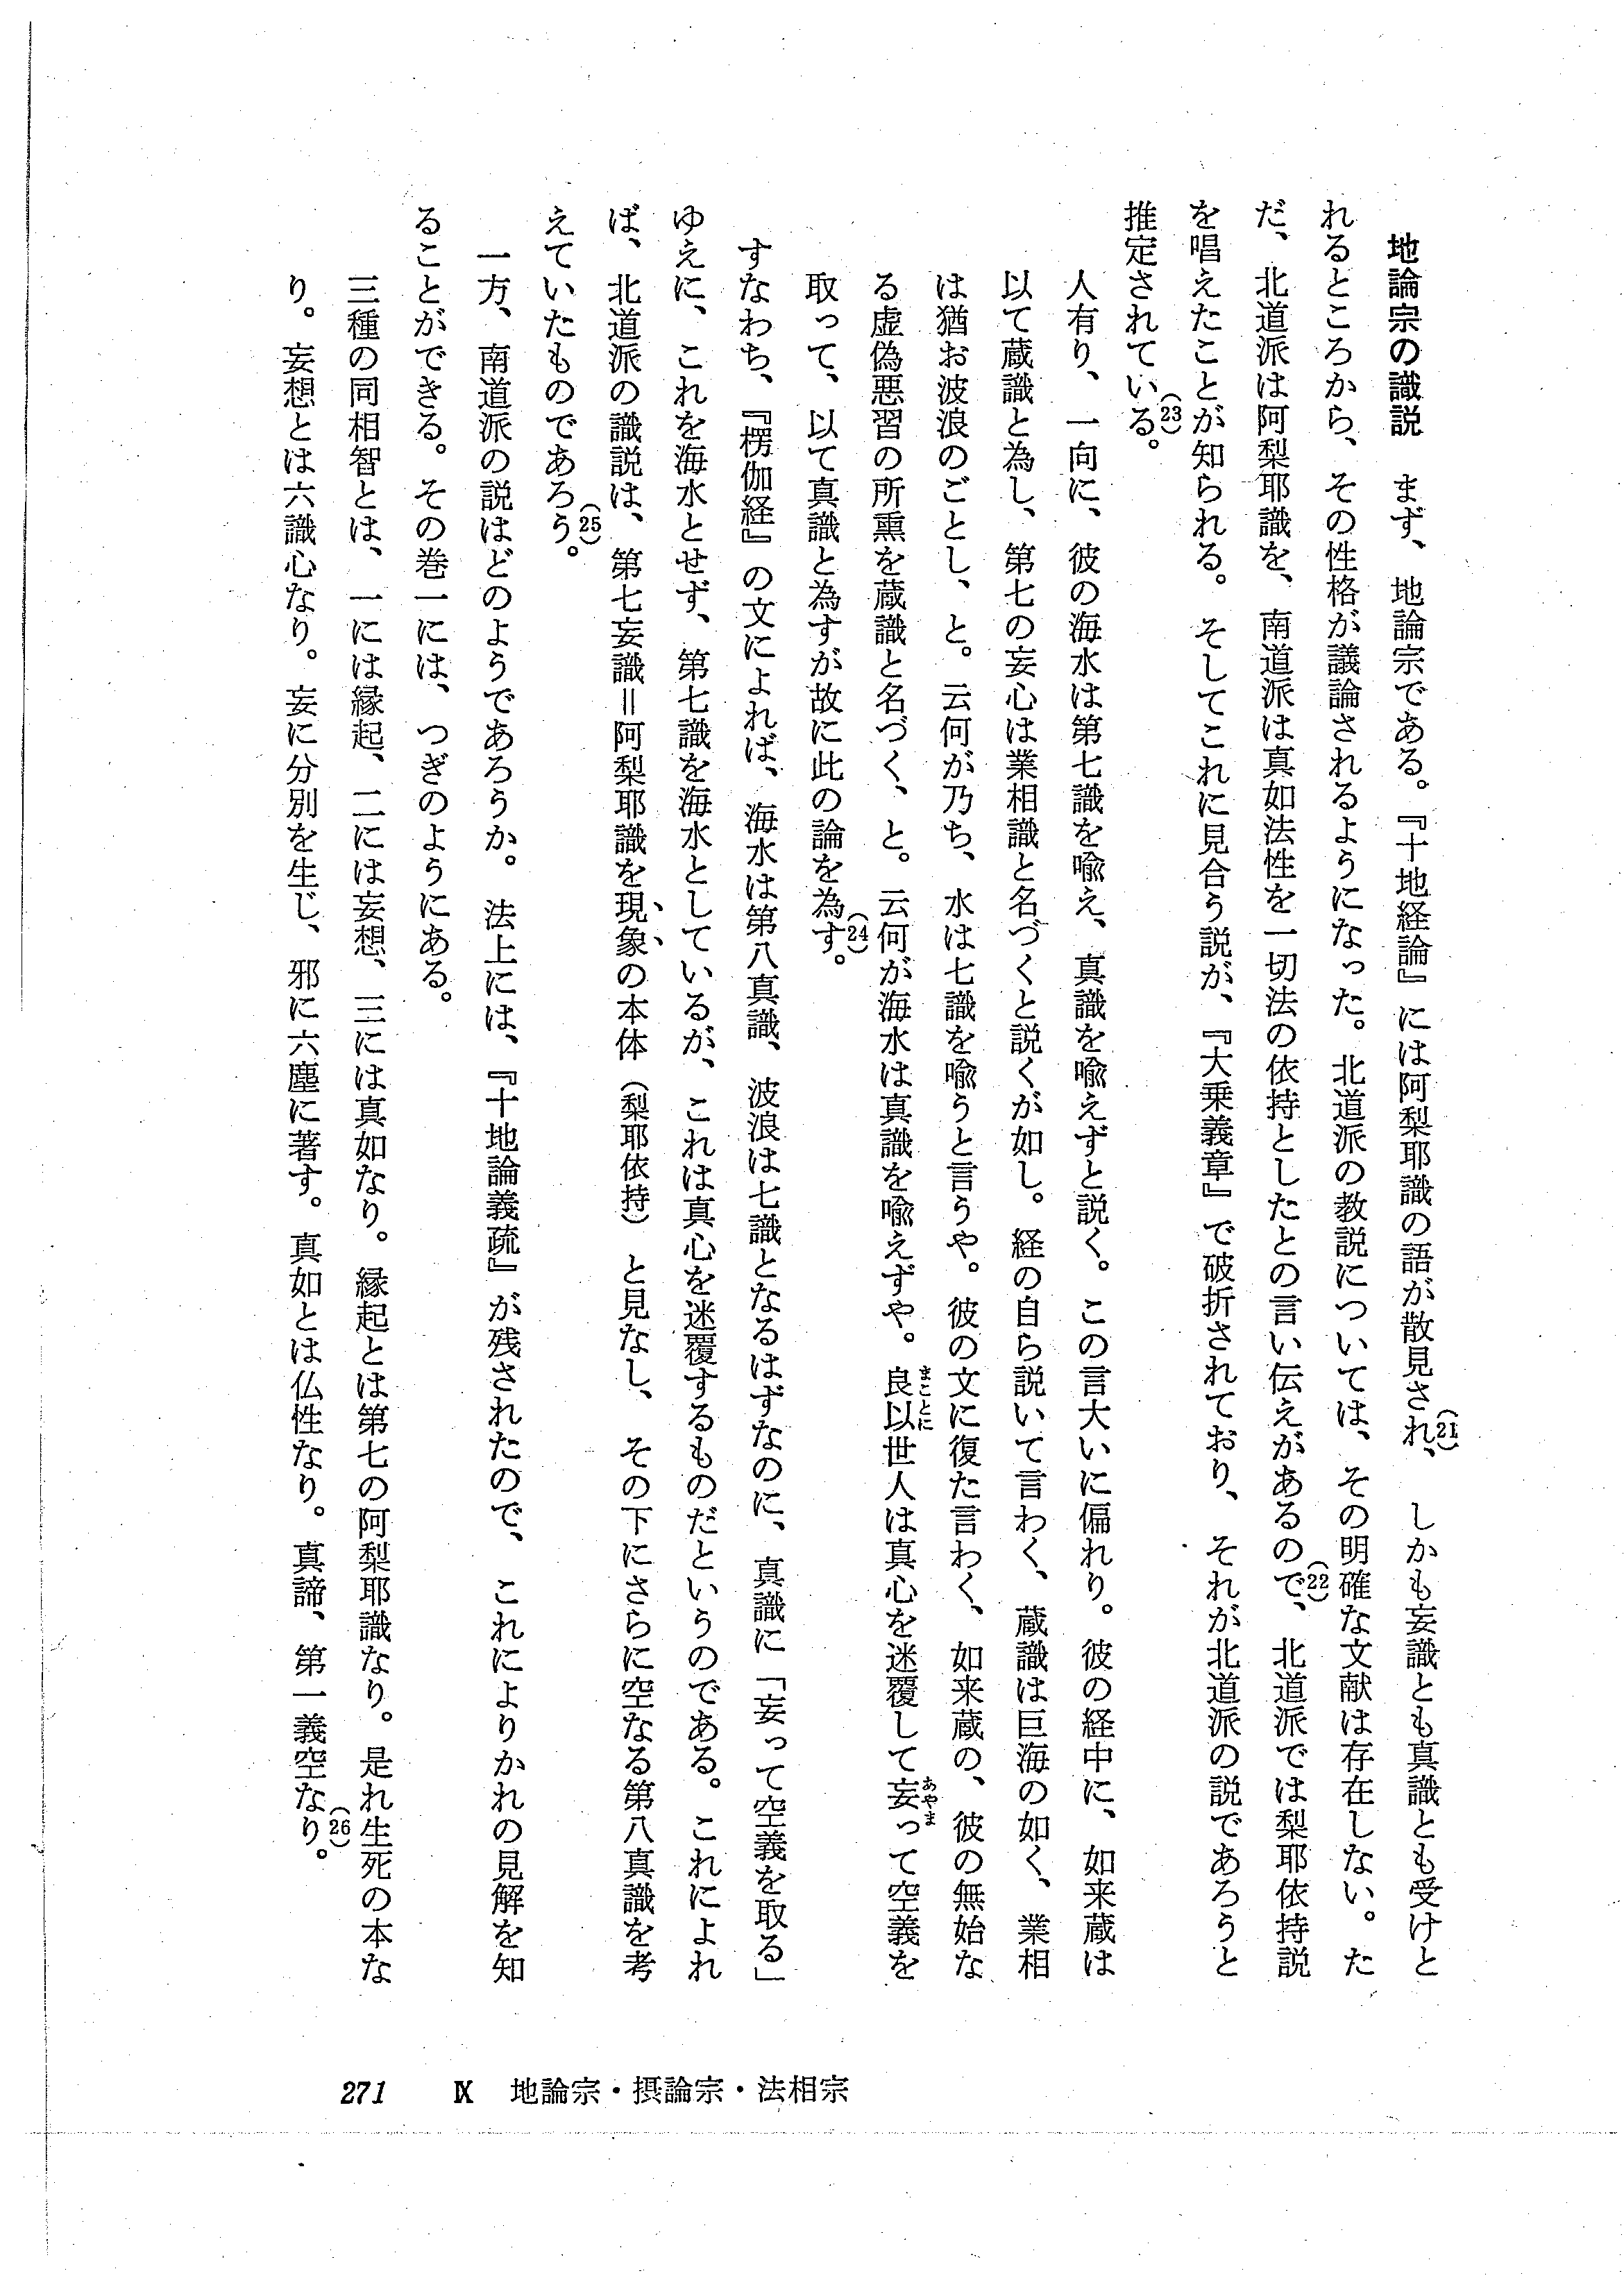 地論宗の識説　まず、地論宗である。『十地経論』には阿梨耶識の語が散見され、(21)しかも妄識とも真識とも受けと
れるところから、その性格が議論されるようになった。北道派の教説については、その明確な文献は存在しない。た
だ、北道派は阿梨耶識を、南道派は真如法性を一切法の依持としたとの言い伝えがあるので、(22)北道派では梨耶依持説
を唱えたことが知られる。そしてこれに見合う説が、『大乗義章』で破折されており、それが北道派の説であろうと
推定されている。(23)
人有り、一向に、彼の海水は第七識を喩え、真識を喩えずと説く。この言大いに偏れり。彼の経中に、如来蔵は
以て蔵識と為し、第七の妄心は業相識と名づくと説くが如し。経の自ら説いて言わく、蔵識は巨海の如く、業相
は猶お波浪のごとし、と。云何が乃ち、水は七識を喩うと言うや。彼の文に復た言わく、如来蔵の、彼の無始な
る虚偽悪習の所熏を蔵識と名づく、と。云何が海水は真識を喩えずや。良以(まことに)世人は真心を迷覆して妄(あやま)って空義を
取って、以て真識と為すが故に此の論を為す。(24)
すなわち、『楞伽経』の文によれば、海水は第八真識、波浪は七識となるはずなのに、真識に「妄って空義を取る」
ゆえに、これを海水とせず、第七識を海水としているが、これは真心を迷覆するものだというのである。これによれ
ば、北道派の識説は、第七妄識＝阿梨耶識を現象の本体（梨耶依持）と見なし、その下にさらに空なる第八真識を考
えていたものであろう。(25)
一方、南道派の説はどのようであろうか。法上には、『十地論義疏』が残されたので、これによりかれの見解を知
ることができる。その巻一には、つぎのようにある。
三種の同相智とは、一には縁起、二には妄想、三には真如なり。縁起とは第七の阿梨耶識なり。是れ生死の本な
り。妄想とは六識心なり。妄に分別を生じ、邪に六塵に著す。真如とは仏性なり。真諦、第一義空なり。(26)
271　Ⅸ　地論宗・摂論宗・法相宗